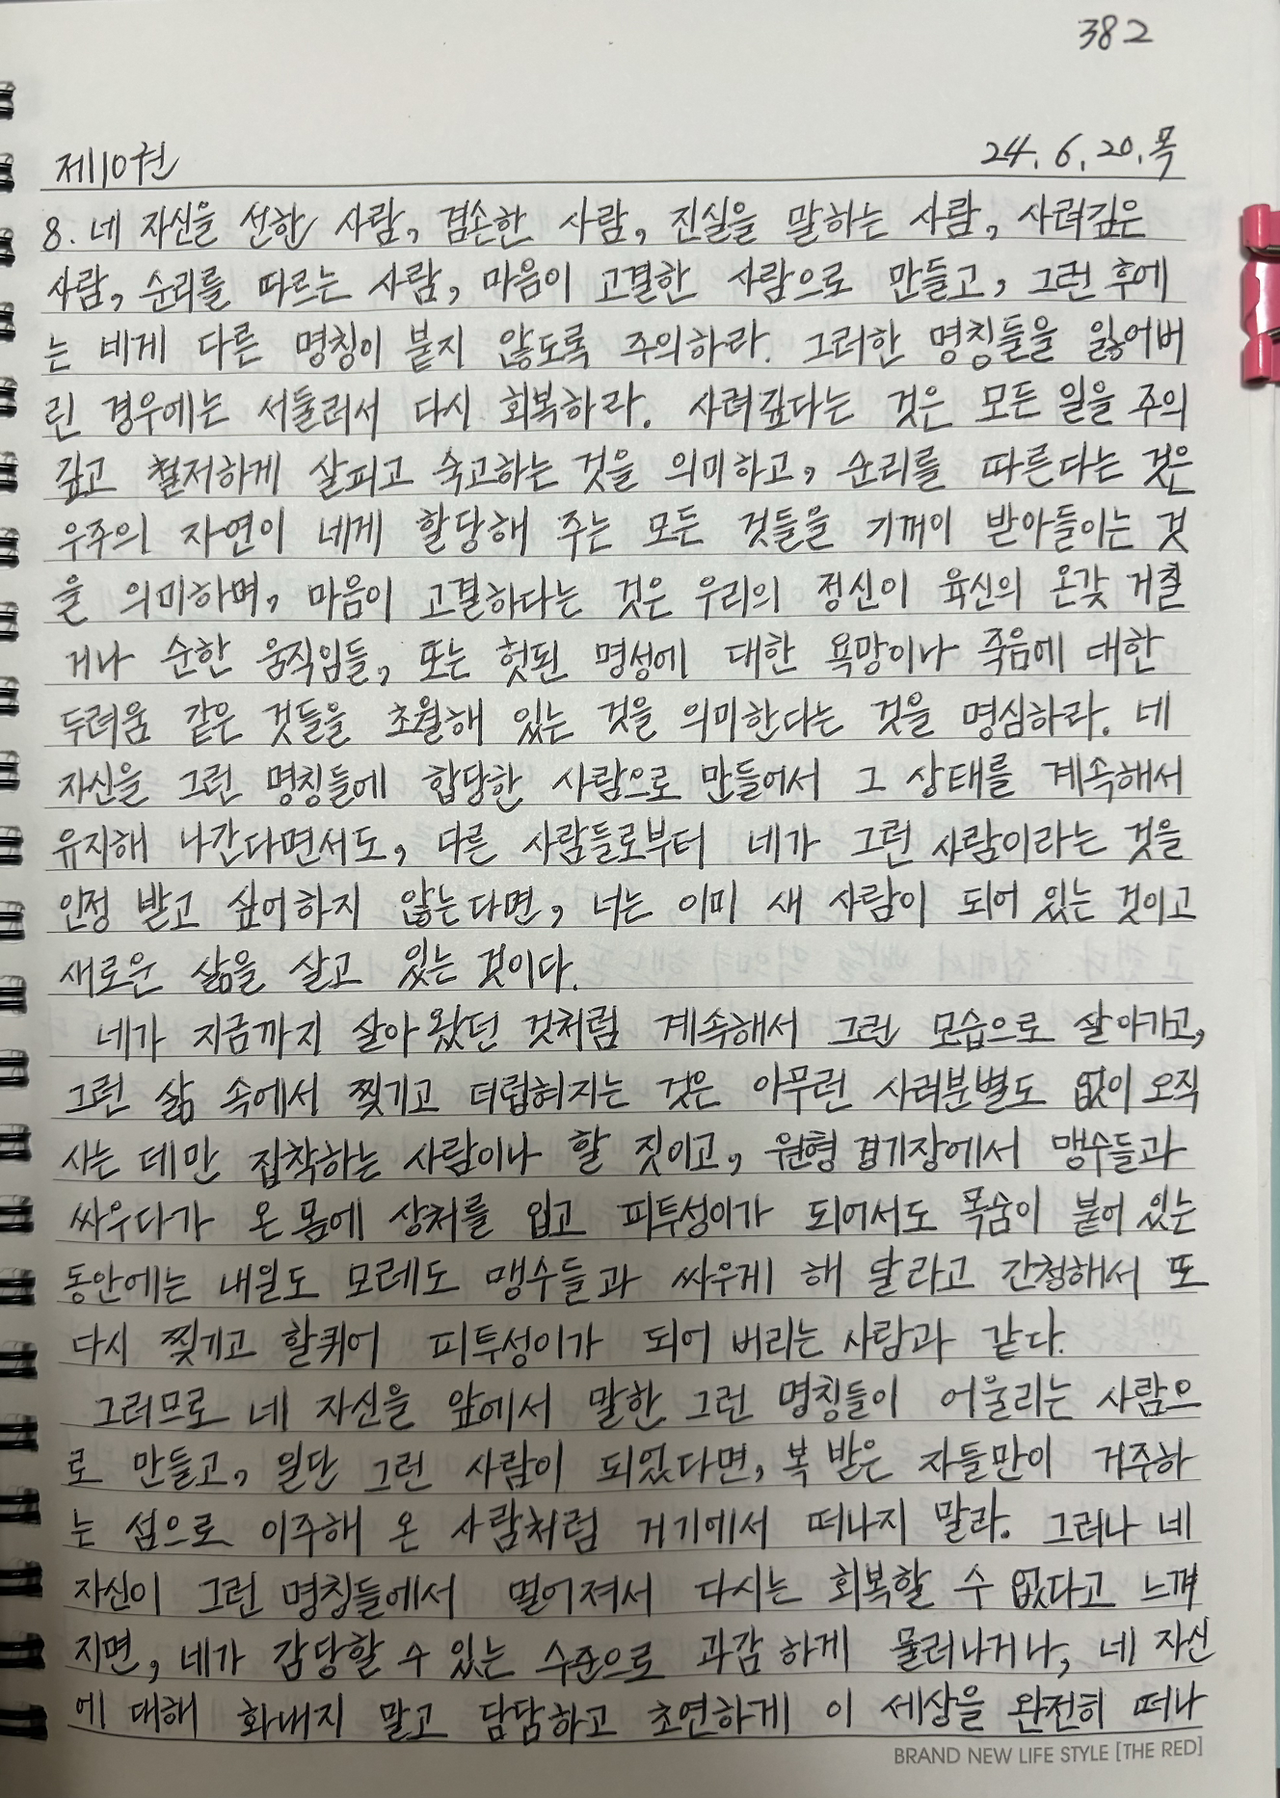 382
제10권 24.6.20.목
8. 네 자신을 선한 사람, 겸손한 사람, 진실을 말하는 사람, 사려깊은
사람, 순리를 따르는 사람, 마음이 고결한 사람으로 만들고, 그런 후에
는 네게 다른 명칭이 붙지 않도록 주의하라. 그러한 명칭들을 잃어버
린 경우에는 서둘러서 다시 회복하라. 사려깊다는 것은 모든 일을 주의
깊고 철저하게 살피고 숙고하는 것을 의미하고, 순리를 따른다는 것은
우주의 자연이 네게 할당해 주는 모든 것들을 기꺼이 받아들이는 것
을 의미하며, 마음이 고결하다는 것은 우리의 정신이 육신의 온갖 거칠
거나 순한 움직임들, 또는 헛된 명성에 대한 욕망이나 죽음에 대한
두려움 같은 것들을 초월해 있는 것을 의미한다는 것을 명심하라. 네
자신을 그런 명칭들에 합당한 사람으로 만들어서 그 상태를 계속해서
유지해 나간다면서도, 다른 사람들로부터 네가 그런 사람이라는 것을
인정 받고 싶어하지 않는다면, 너는 이미 새 사람이 되어 있는 것이고
새로운 삶을 살고 있는 것이다.
네가 지금까지 살아 왔던 것처럼 계속해서 그런 모습으로 살아가고,
그런 삶 속에서 찢기고 더럽혀지는 것은 아무런 사려분별도 없이 오직
사는 데만 집착하는 사람이나 할 짓이고, 원형 경기장에서 맹수들과
싸우다가 온 몸에 상처를 입고 피투성이가 되어서도 목숨이 붙어 있는
동안에는 내일도 모레도 맹수들과 싸우게 해 달라고 간청해서 또
다시 찢기고 할퀴어 피투성이가 되어 버리는 사람과 같다.
그러므로 네 자신을 앞에서 말한 그런 명칭들이 어울리는 사람으
로 만들고, 일단 그런 사람이 되었다면, 복 받은 자들만이 거주하
는 섬으로 이주해 온 사람처럼 거기에서 떠나지 말라. 그러나 네
자신이 그런 명칭들에서 멀어져서 다시는 회복할 수 없다고 느껴
지면, 네가 감당할 수 있는 수준으로 과감하게 물러나거나, 네 자신
에 대해 화내지 말고 담담하고 초연하게 이 세상을 완전히 떠나
BRAND NEW LIFE STYLE [THE RED]